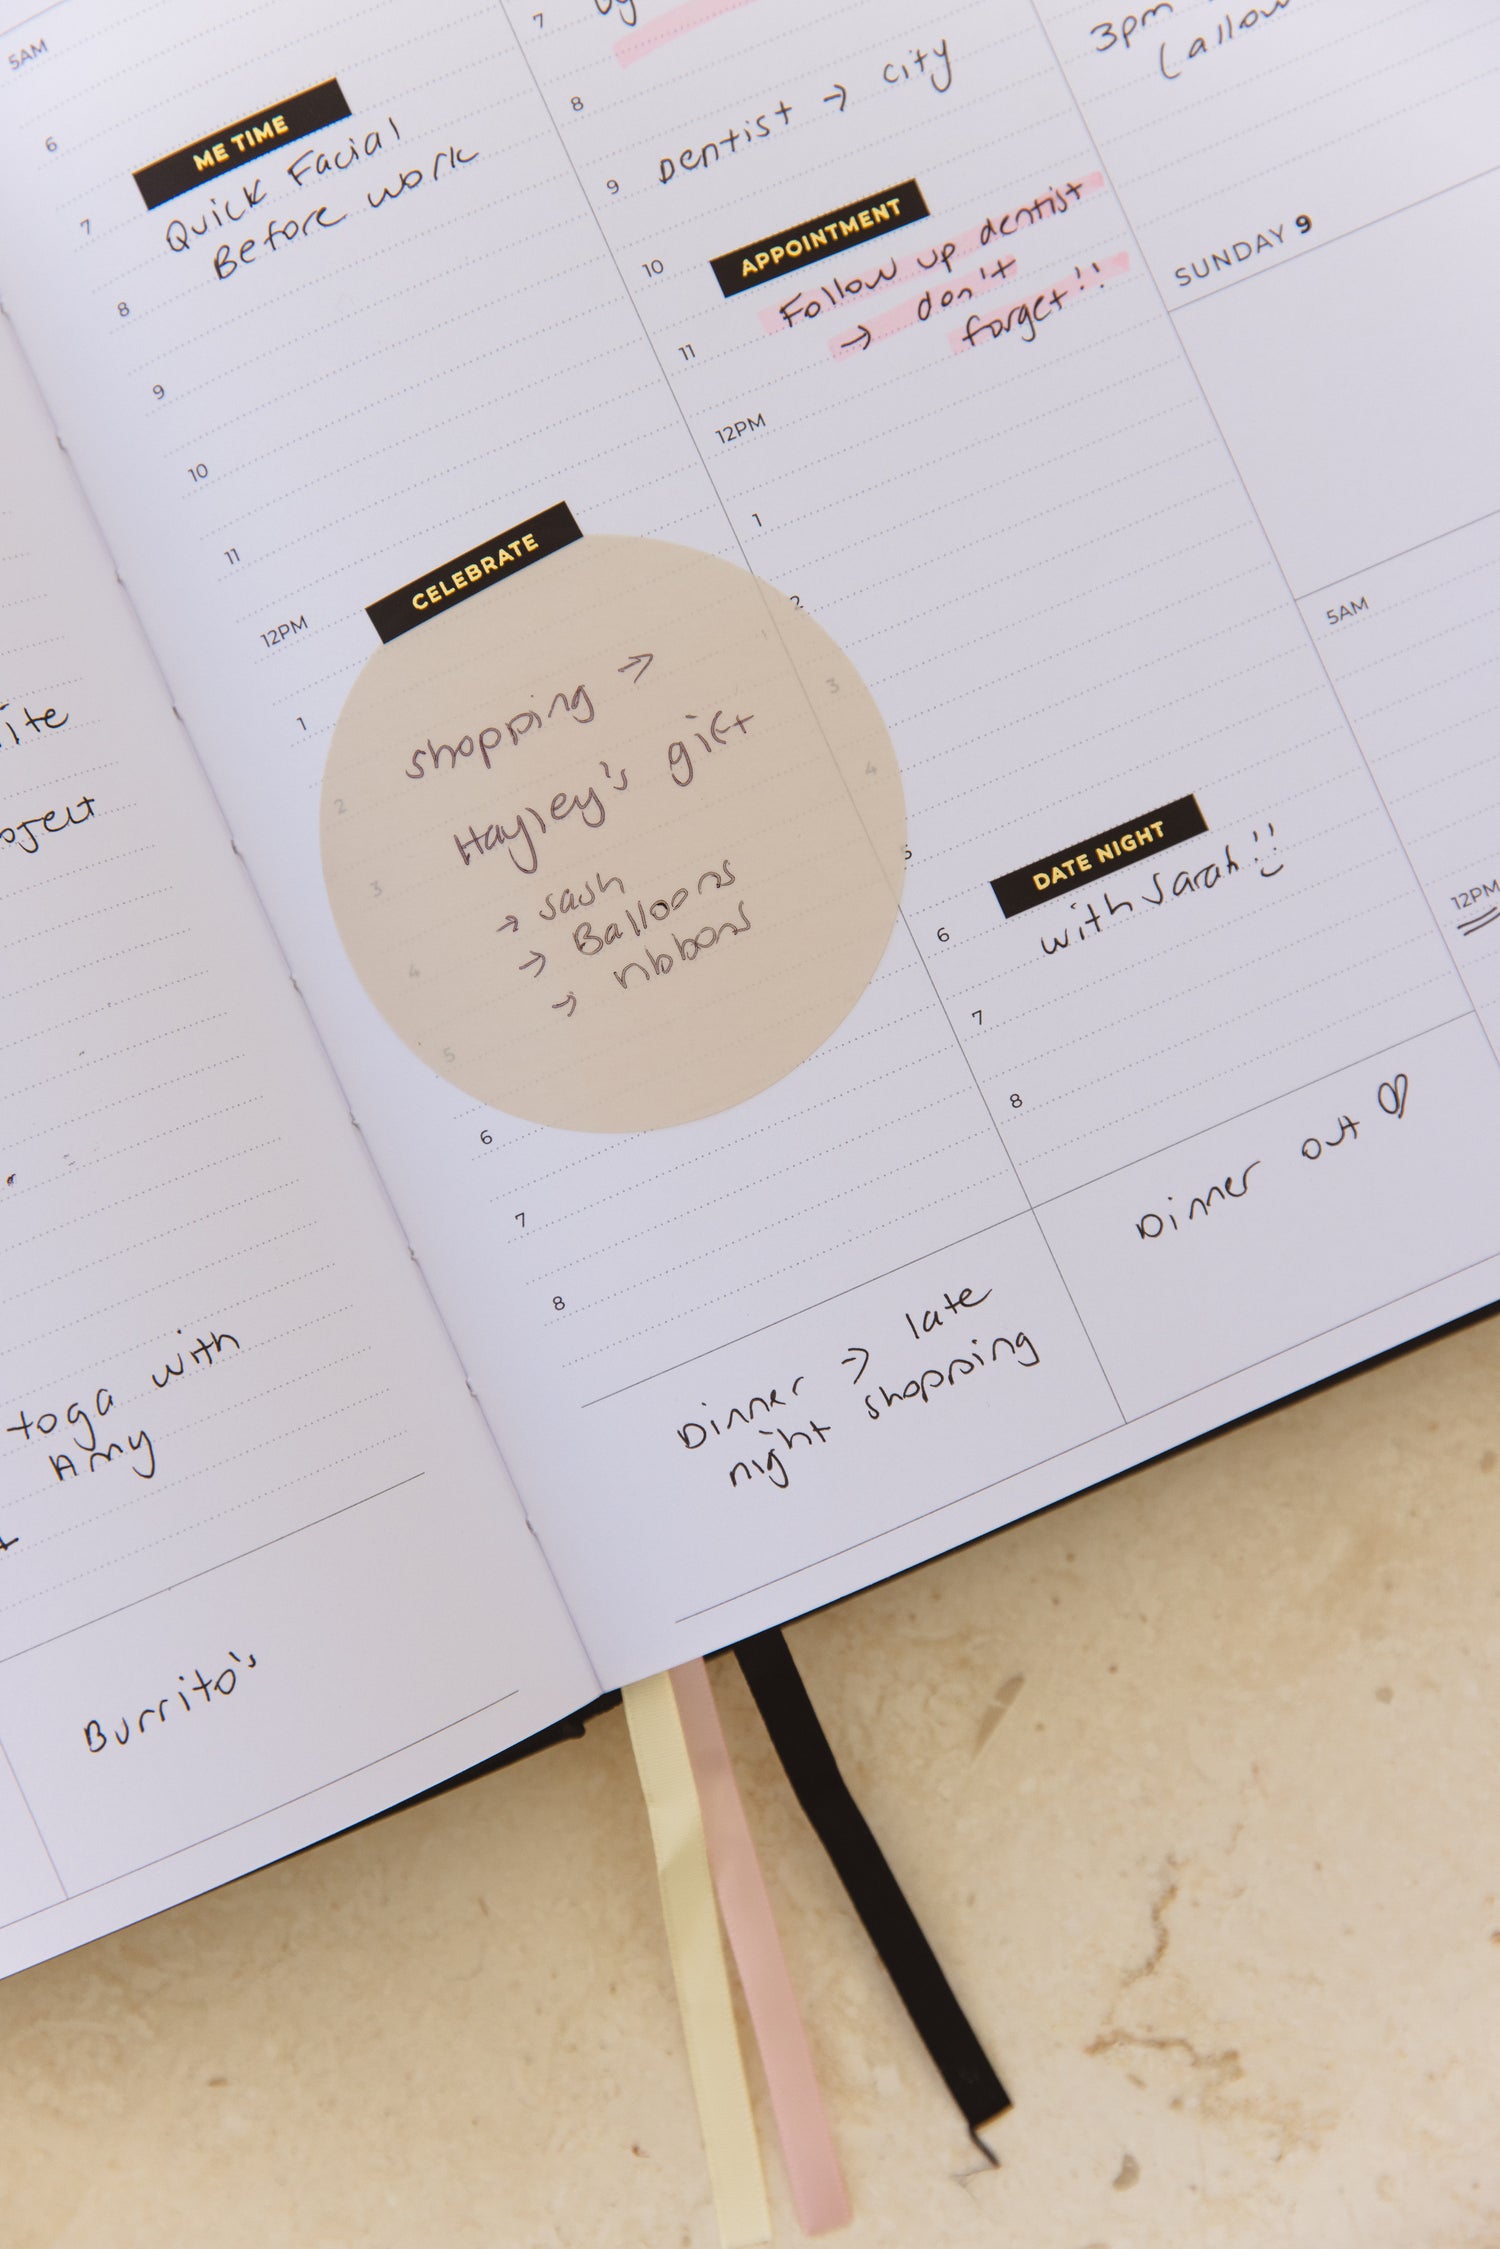 Burrito's
toga with
Amy
5AM
6
ME TIME
7
Quick Facial
Before work
8
9
10
11
CELEBRATE
12PM
1
shopping →
Hayley's gift
2
3
→ sash
→ Balloons
→ ribbons
4
5
6
7
8
Dinner → late
night shopping
7
8
Dentist → city
9
APPOINTMENT
10
Follow up dentist
→ don't
forget!!
11
12PM
1
2
3
4
5
DATE NIGHT
6
with Sarah!!
7
8
Dinner out ♡
3pm
(allow
SUNDAY 9
5AM
12PM